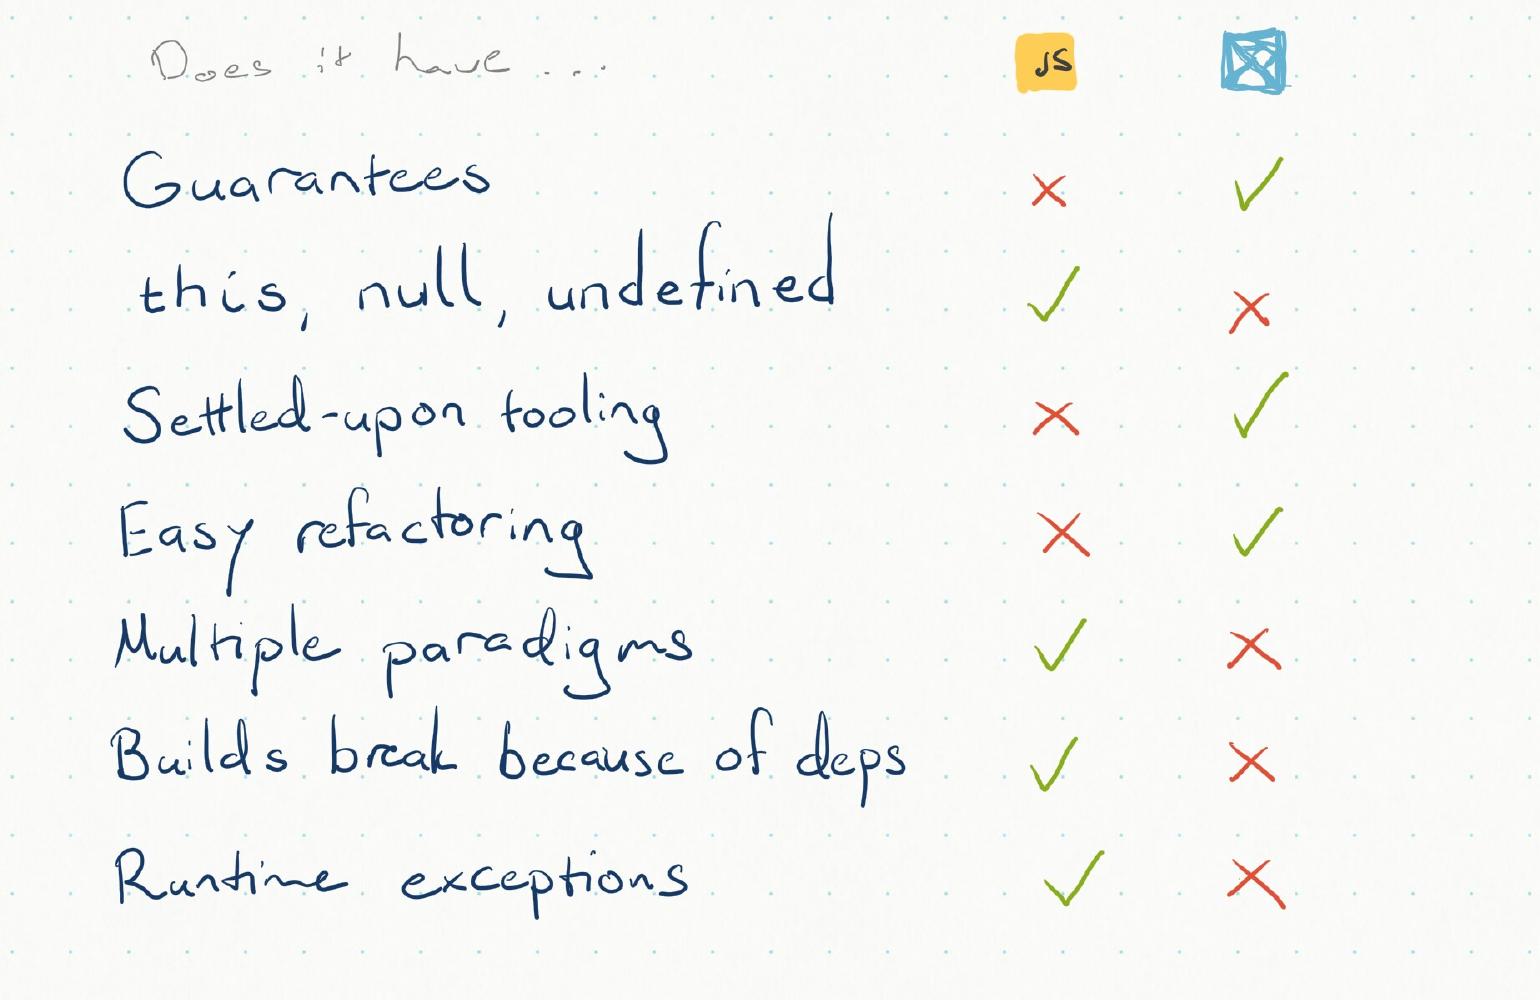 Does it have ... JS
Guarantees
this, null, undefined
Settled-upon tooling
Easy refactoring
Multiple paradigms
Builds break because of deps
Runtime exceptions